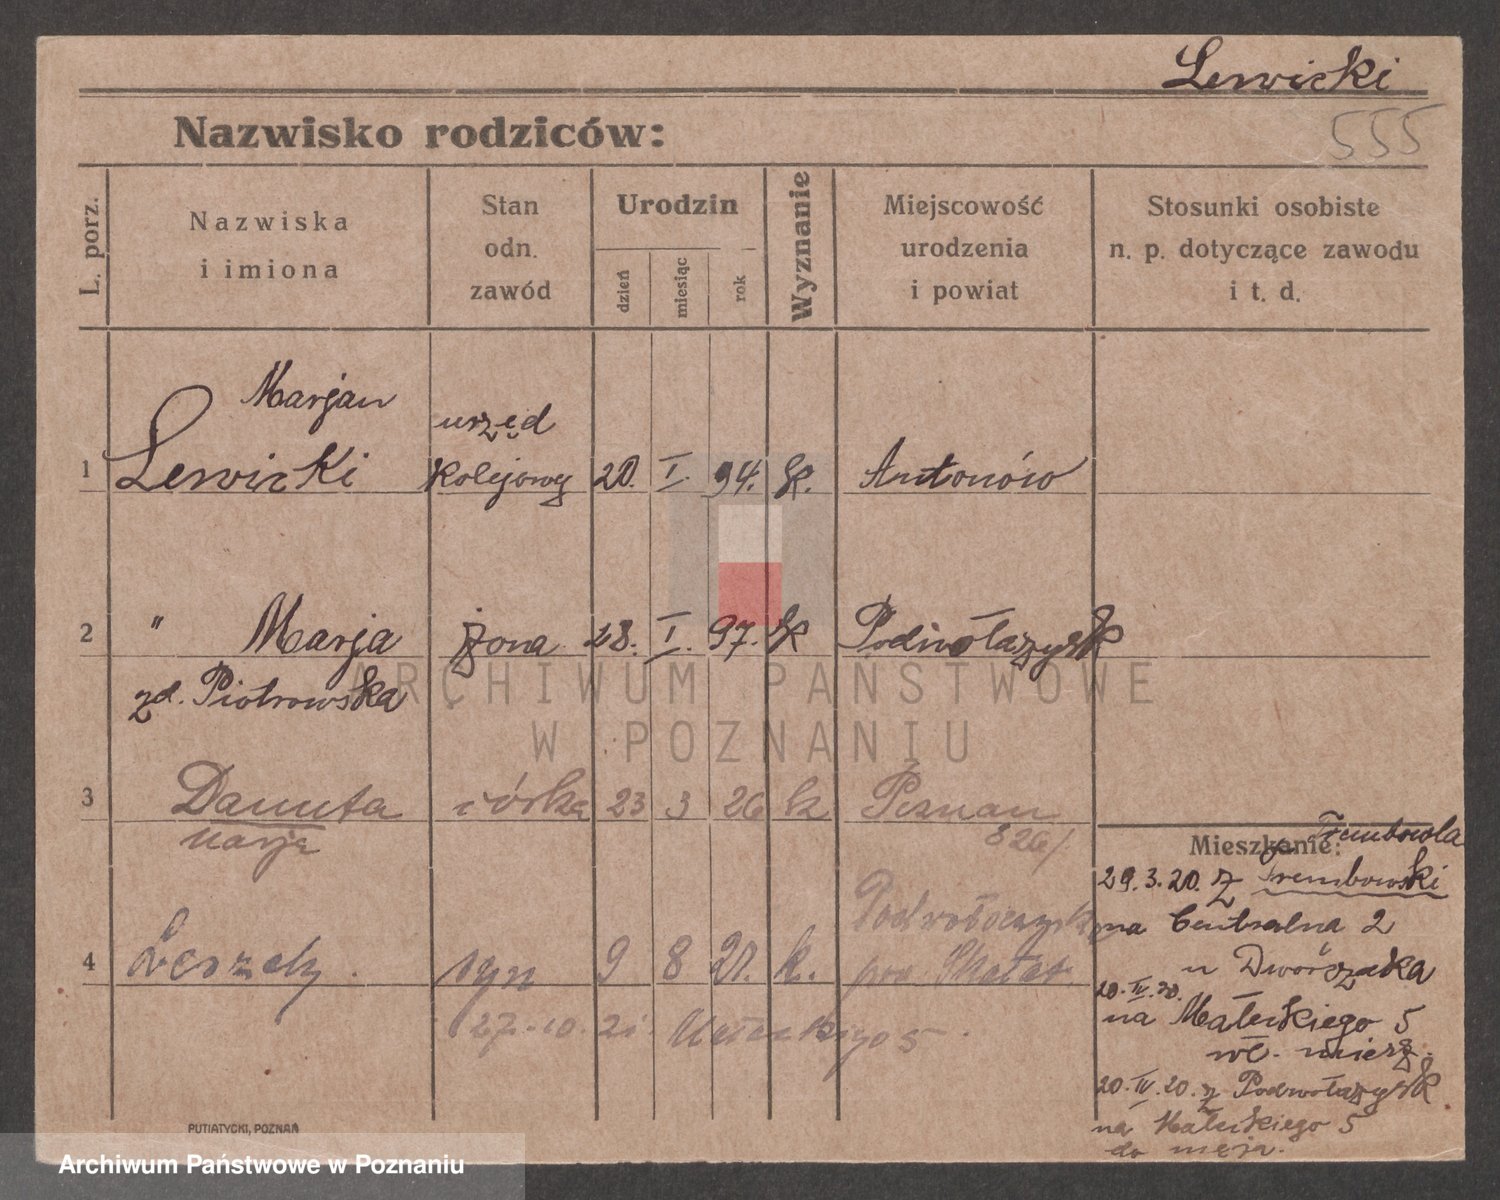 Lewicki
Nazwisko rodziców:
555
L. porz.
Nazwiska
i imiona
Stan
odn.
zawód
Urodzin
dzień
miesiąc
rok
Wyznanie
Miejscowość
urodzenia
i powiat
Stosunki osobiste
n. p. dotyczące zawodu
i t. d.
Marjan
urzęd
1 Lewicki kolejowy 20. I. 94. k. Antonów
2 " Marja żona 28. I. 97. k Podwołaczysk
zd. Piotrowska
3 Danuta córka 23 3 26 k Poznan
Marja 826/
Podwołoczyska
4 Leszek syn 9 8 21. k. pow Skałat.
27.10.21. Małeckiego 5
Mieszkanie:
Trembowla
29.3.20. z Trembowski
na Centralna 2
u Dworczaka
20.IV.20.
na Małeckiego 5
wł. miesz.
20.IV.20. z Podwołaczysk
na Małeckiego 5
do męża.
PUTIATYCKI, POZNAŃ
ARCHIWUM PAŃSTWOWE
W POZNANIU
Archiwum Państwowe w Poznaniu